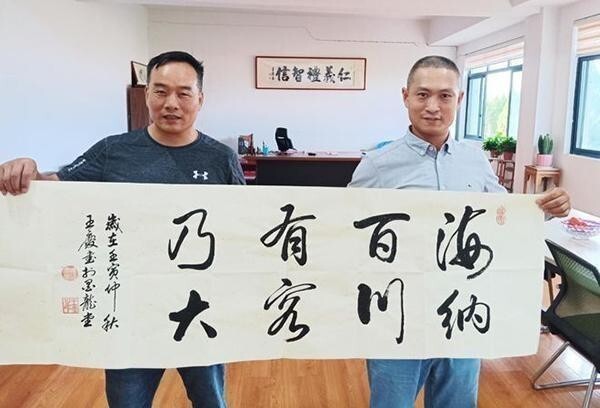 仁義禮智信
海纳
百川
有容
乃大
歲在壬寅仲秋
王慶書於墨龍堂